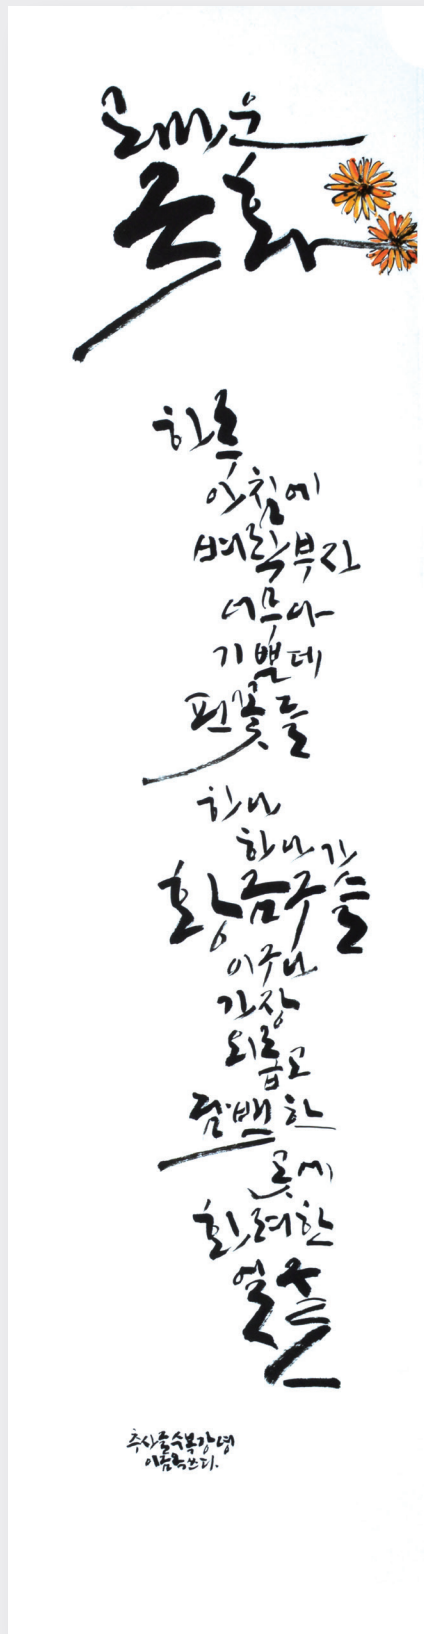 국화
하루
아침에
벼락부자
너무나
기쁜데
핀꽃들
하나
하나가
황금구슬
이구나
가장
외롭고
담백한
곳에
화려한
얼굴
추사글 수복강녕
쓰다.